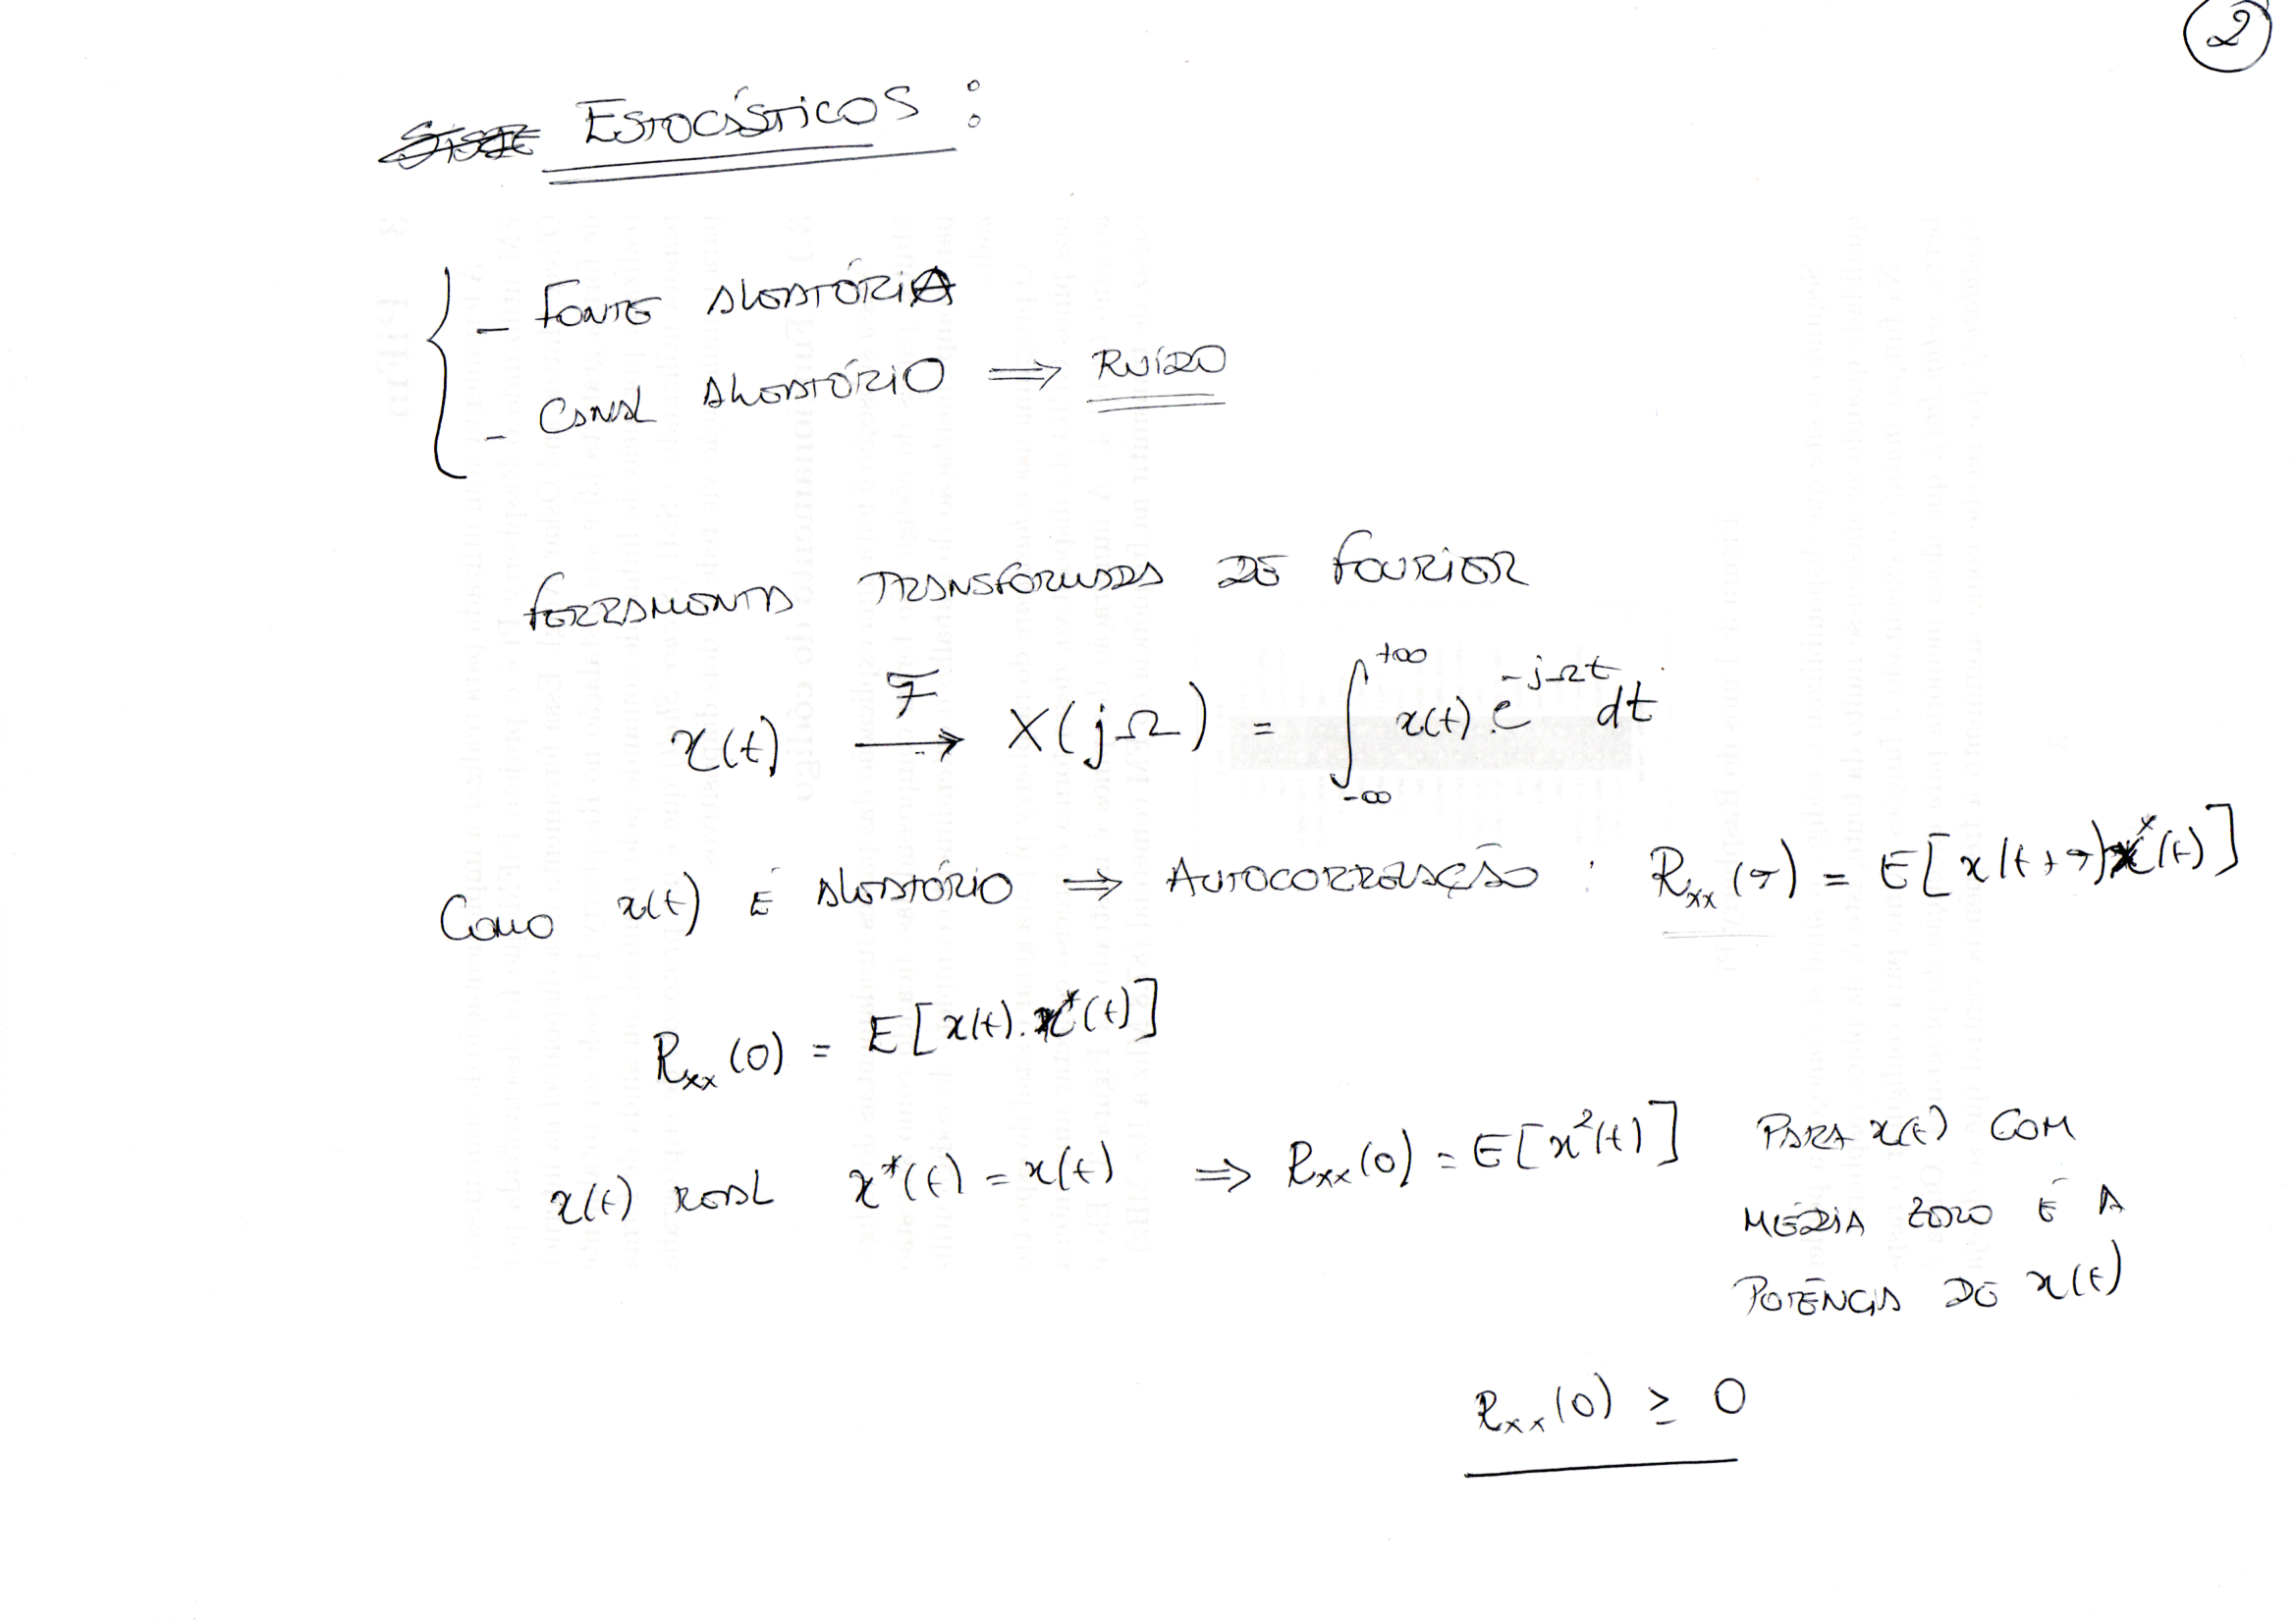 2
ESTOCÁSTICOS :
- FONTE ALEATÓRIA
- CANAL ALEATÓRIO ⇒ RUÍDO
FERRAMENTA TRANSFORMADA DE FOURIER
x(t) --F--> X(jΩ) = ∫_{-∞}^{+∞} x(t).e^{-jΩt} dt
COMO x(t) É ALEATÓRIO ⇒ AUTOCORRELAÇÃO : R_xx(τ) = E[x(t+τ)x*(t)]
R_xx(0) = E[x(t).x*(t)]
x(t) REAL x*(t) = x(t) ⇒ R_xx(0) = E[x²(t)] PARA x(t) COM
MÉDIA ZERO É A
POTÊNCIA DE x(t)
R_xx(0) ≥ 0